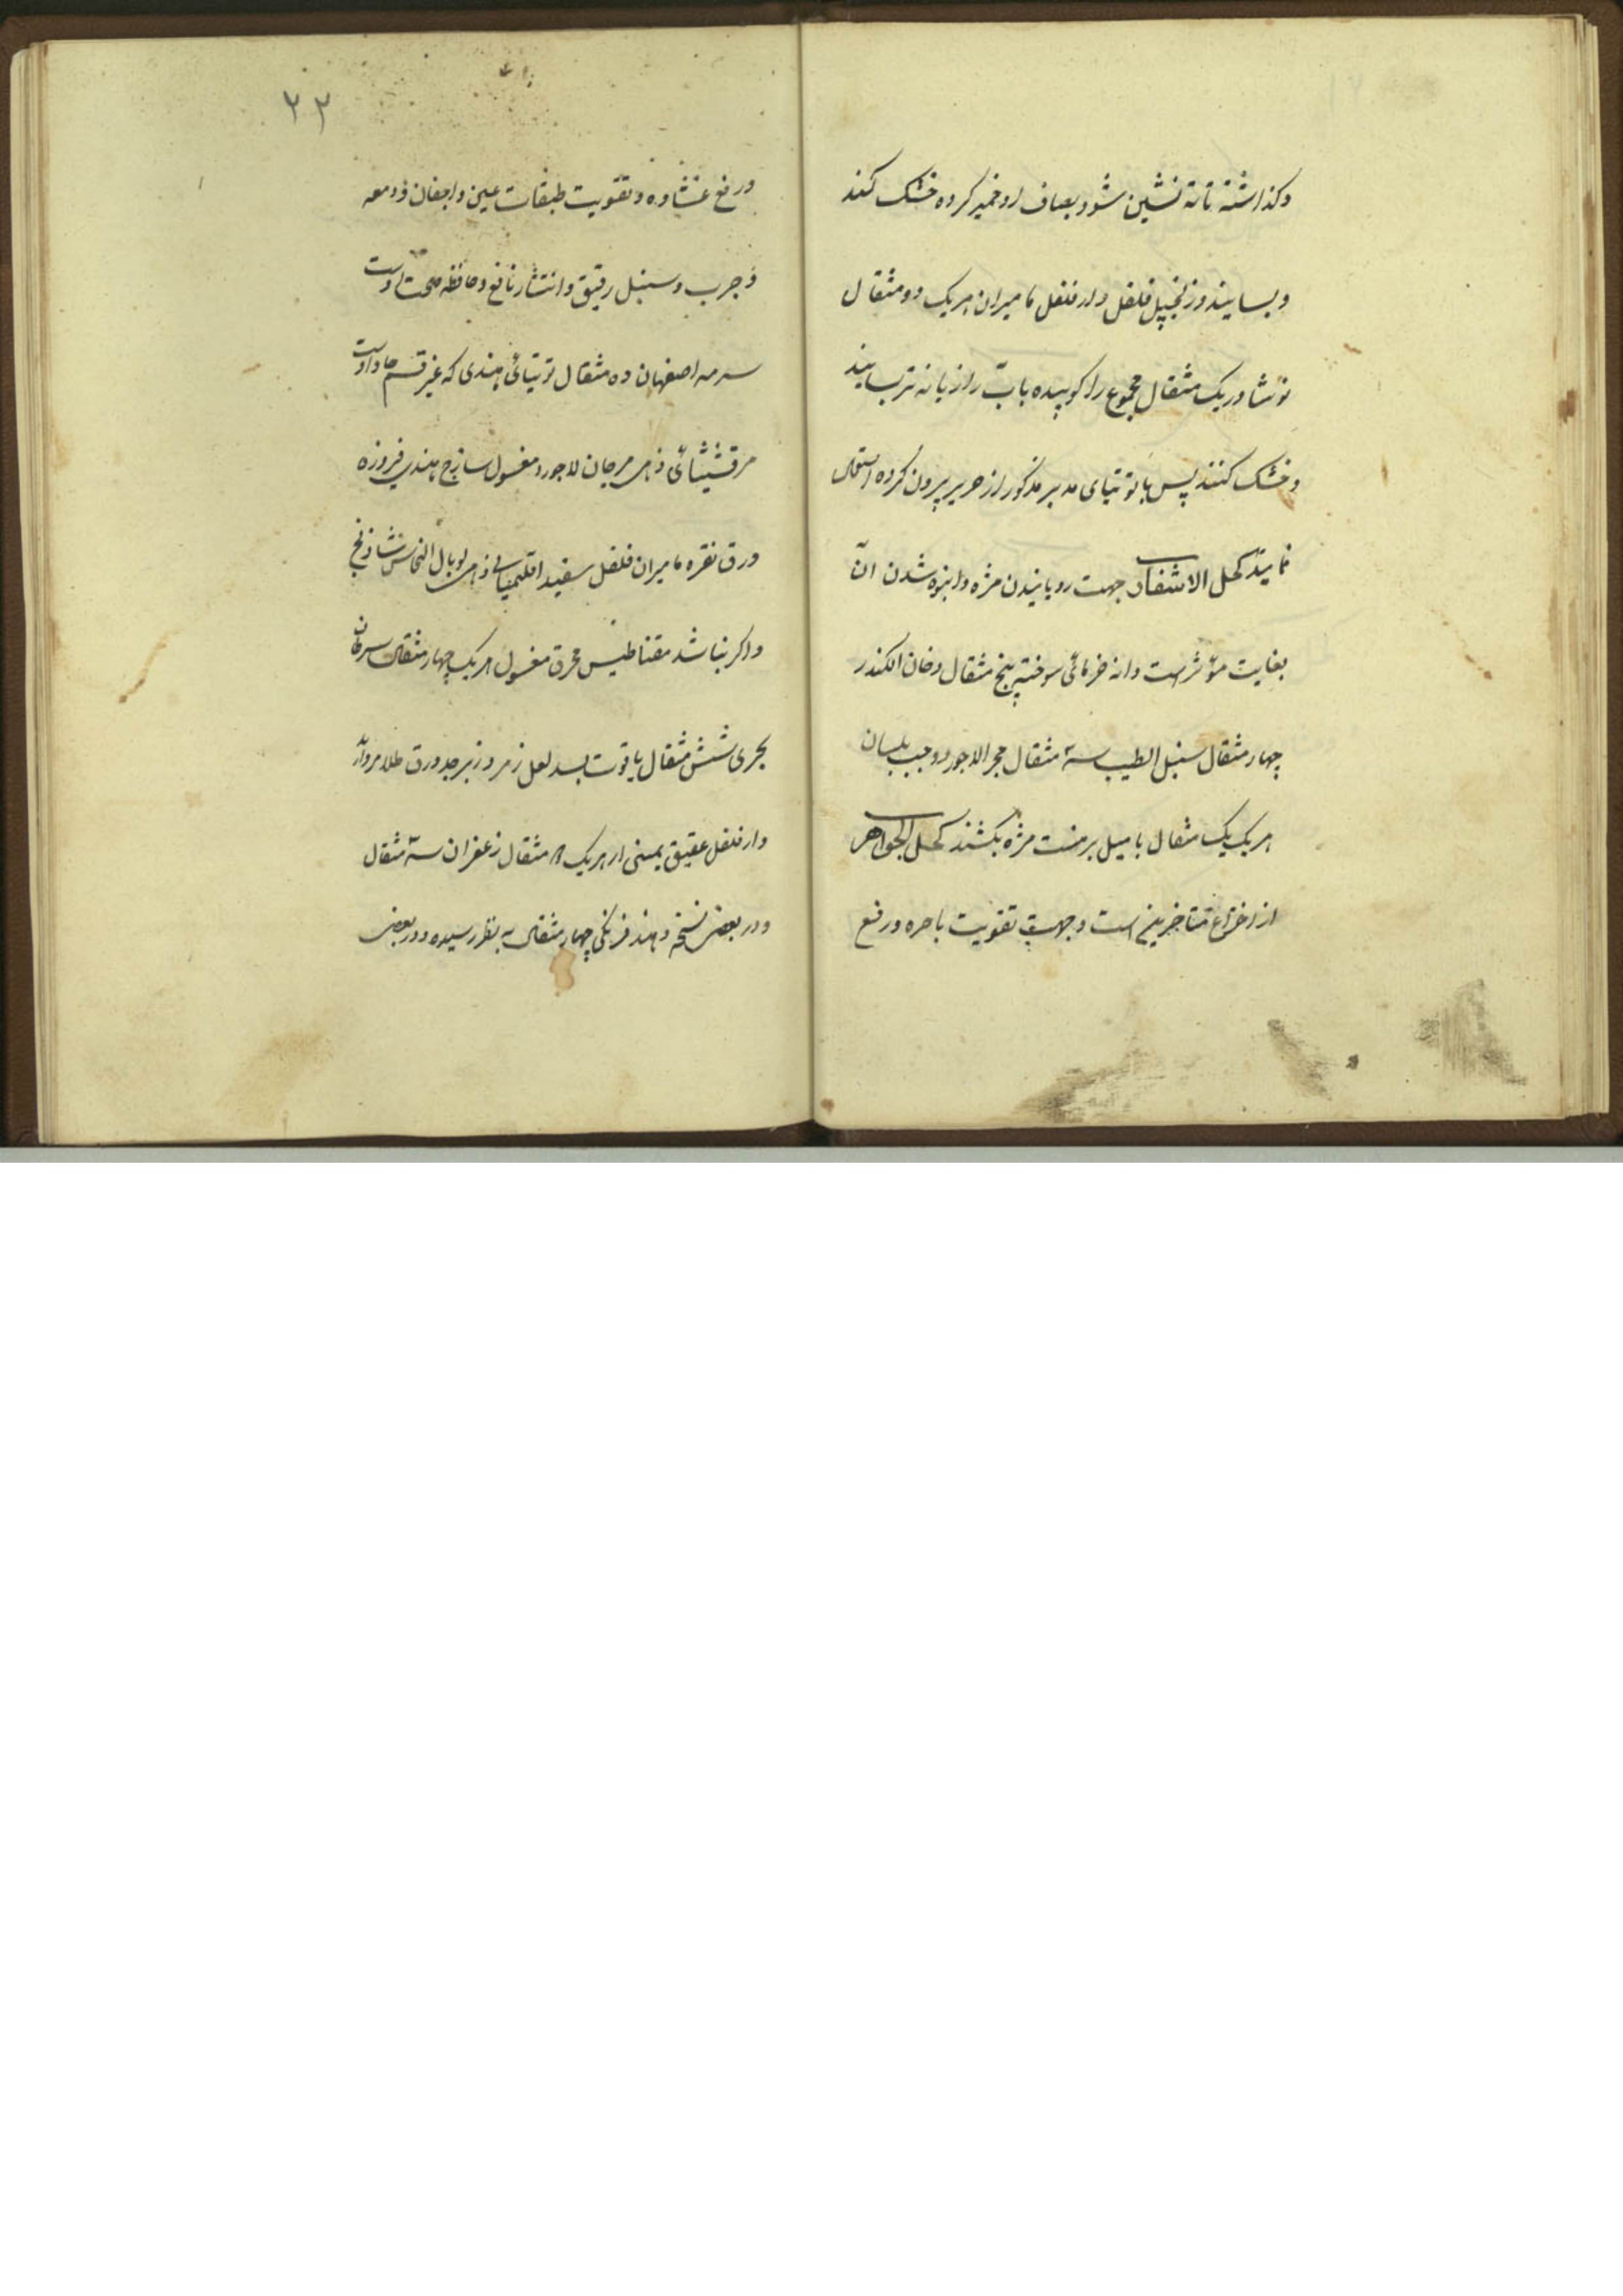 وکذاشته تا ته نشین شود بصاف او خمیر کرده خشک کنند
وبسایند وزنجبیل فلفل دارفلفل مامیران هریک دو مثقال
نوشادر یک مثقال مجموع را کوبیده باب رازیانه تر بسایند
وخشک کنند پس با توتیای مدبر مذکور از حریر بیرون کرده استعمال
نمایند کحل الاشفار جهت رویانیدن مژه وانبوه شدن ان
بغایت مؤثر است دانه خرمائی سوخته پنج مثقال دخان الکندر
چهار مثقال سنبل الطیب سه مثقال حجر الاجورد وحب بلسان
هریک یک مثقال با میل بر منبت مژه بکشند کحل الجواهر
از اختراع متاخرین است وجهت تقویت باصره ورفع
۲۲
ورفع غشاوه وتقویت طبقات عین واجفان ودمعه
وجرب وسبل رقیق وانتشار نافع وحافظ صحت است
سرمه اصفهان ده مثقال توتیائی هندی که غیر قسم
مرقشیثائی ذهبی مرجان لاجورد مغسول ساذج هندی فیروزه
ورق نقره مامیران فلفل سفید اقلیمیای ذهبی توبال النحاس شادنج
واکر نباشد مقناطیس محرق مغسول هریک چهار مثقال سرطان
بحری شش مثقال یاقوت بسد لعل زمرد زبرجد ورق طلا مروارید
دارفلفل عقیق یمنی از هریک مثقال زعفران سه مثقال
ودر بعض نسخه دهنه فرنکی چهار مثقال به نظر رسیده ودر بعض